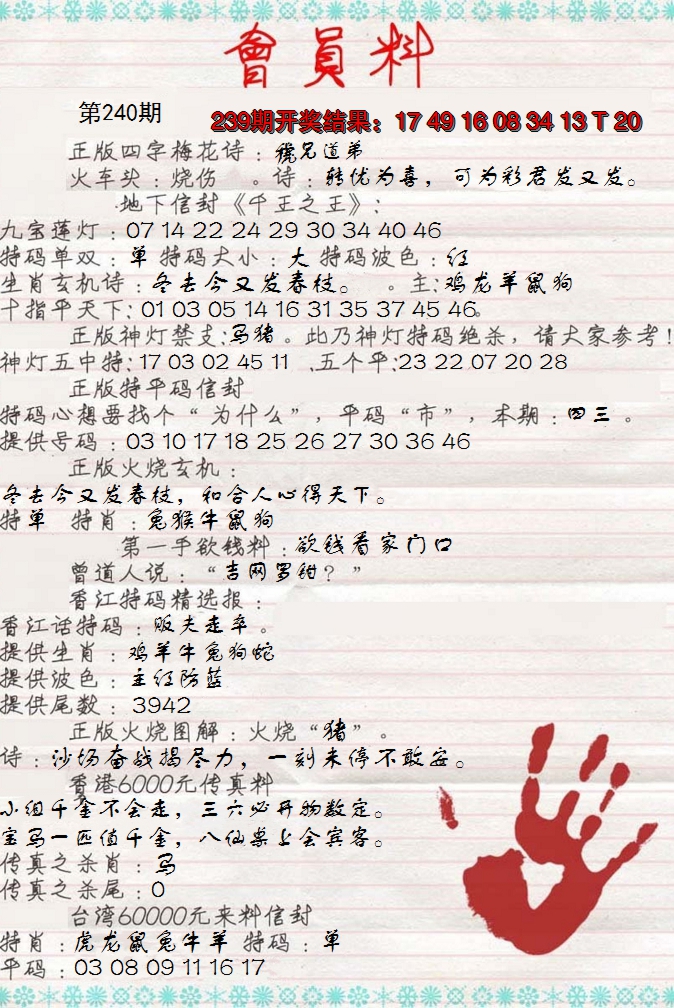 會員料
第240期
239期开奖结果：17 49 16 08 34 13 T 20
正版四字梅花诗：称兄道弟
火车头：烧伤 。诗：转优为喜，可为彩君发又发。
地下信封《千王之王》：
九宝莲灯：07 14 22 24 29 30 34 40 46
特码单双：单 特码大小：大 特码波色：红
生肖玄机诗：冬去今又发春枝。 。主：鸡龙羊鼠狗
十指平天下：01 03 05 14 16 31 35 37 45 46。
正版神灯禁支：马猪。此乃神灯特码绝杀，请大家参考！
神灯五中特：17 03 02 45 11 .五个平：23 22 07 20 28
正版特平码信封
特码心想要找个“为什么”，平码“市”，本期：四三。
提供号码：03 10 17 18 25 26 27 30 36 46
正版火烧玄机：
冬去今又发春枝，和合人心得天下。
特单 特肖：兔猴牛鼠狗
第一手欲钱料：欲钱看家门口
曾道人说：“吉网罗钳？”
香江特码精选报：
香江话特码：贩夫走卒。
提供生肖：鸡羊牛兔狗蛇
提供波色：主红防蓝
提供尾数：3942
正版火烧图解：火烧“猪”。
诗：沙场奋战揭尽力，一刻未停不敢安。
香港6000元传真料
小组千金不会走，三六必开物数定。
宝马一匹值千金，八仙桌上会宾客。
传真之杀肖：马
传真之杀尾：0
台湾60000元来料信封
特肖：虎龙鼠兔牛羊 特码：单
平码：03 08 09 11 16 17